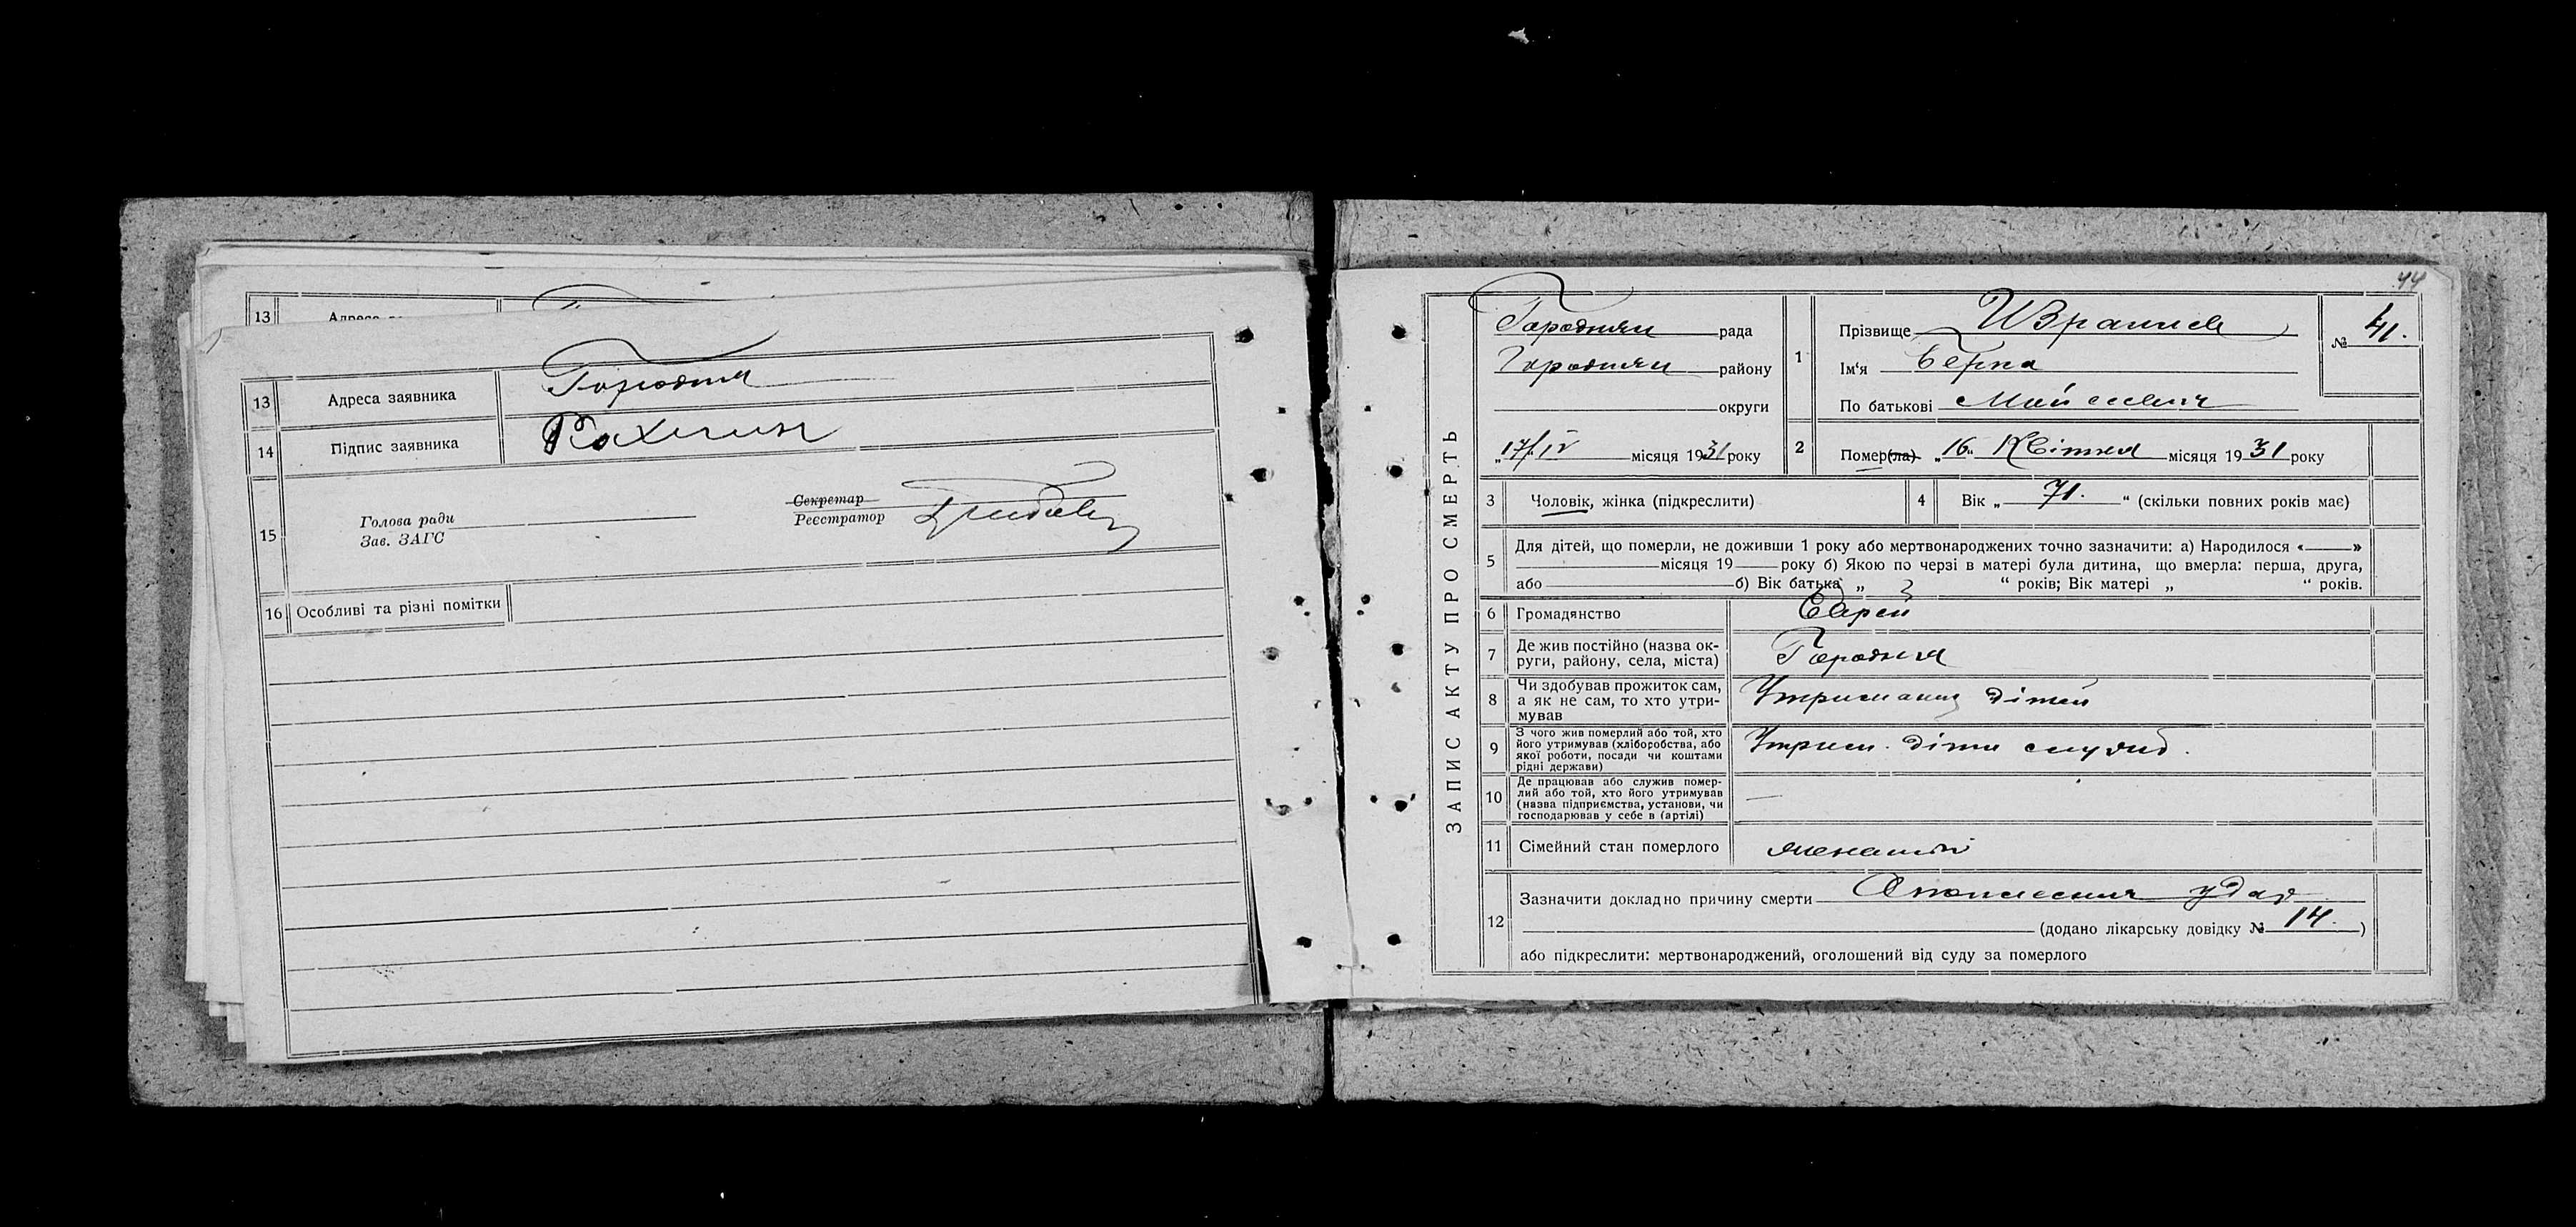 13 Адреса
13 Адреса заявника Городня
14 Підпис заявника Рахлин
15 Голова ради
Зав. ЗАГС
Секретар
Реєстратор
16 Особливі та різні помітки
44
ЗАПИС АКТУ ПРО СМЕРТЬ
Городнян рада
Городнян району
округи
„17/IV місяця 1931 року
1 Прізвище
Ім‘я Берка
По батькові
№ 41.
2 Помер(ла) „16“ Квітня місяця 1931 року
3 Чоловік, жінка (підкреслити)
4 Вік „ 71. “ (скільки повних років має)
5 Для дітей, що померли, не доживши 1 року або мертвонароджених точно зазначити: а) Народилося «—»
місяця 19 року б) Якою по черзі в матері була дитина, що вмерла: перша, друга,
або б) Вік батька „ “ років; Вік матері „ “ років.
6 Громадянство Єврей
7 Де жив постійно (назва ок-
руги, району, села, міста) Городня
8 Чи здобував прожиток сам,
а як не сам, то хто утри-
мував Утриманец дітей
9 З чого жив померлий або той, хто
його утримував (хліборобства, або
якої роботи, посади чи коштами
рідні держави) Утрим. діти служб.
10 Де працював або служив помер-
лий або той, хто його утримував
(назва підприємства, установи, чи
господарював у себе в (артілі) —
11 Сімейний стан померлого женатий
12 Зазначити докладно причину смерти удар
(додано лікарську довідку № 14. )
або підкреслити: мертвонароджений, оголошений від суду за померлого